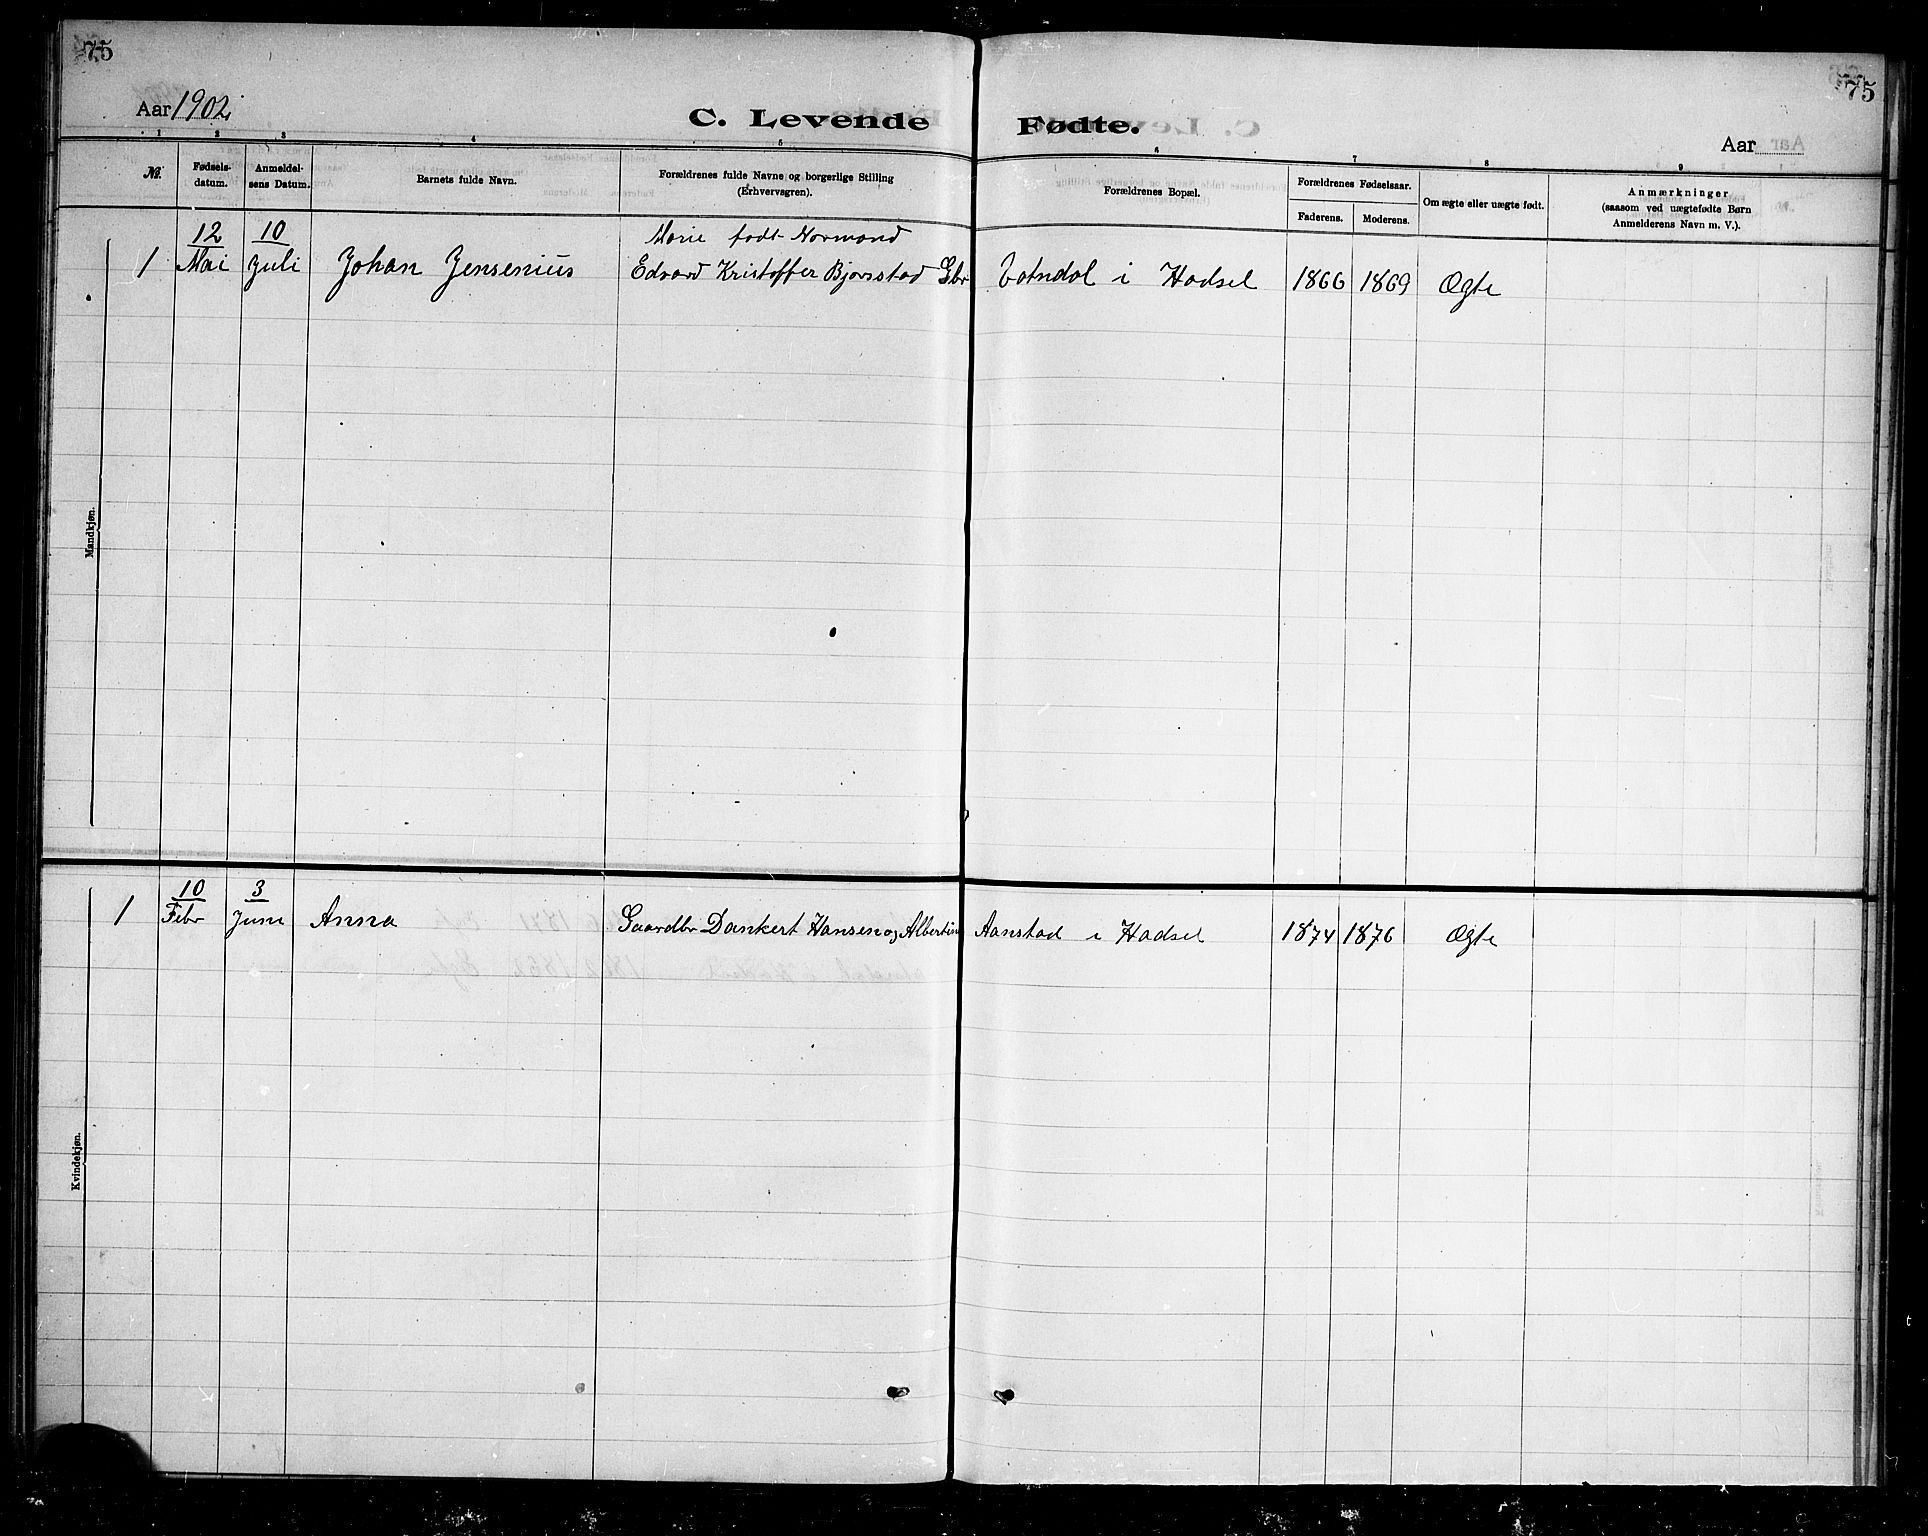 75
75
Aar 1902
C. Levende Fødte.
Aar
1 2 3 4 5 6 7 8 9
№.
Fødsels-
datum.
Anmeldel-
sens Datum.
Barnets fulde Navn.
Forældrenes fulde Navne og borgerlige Stilling
(Erhvervsgren).
Forældrenes Bopæl.
Forældrenes Fødselsaar.
Faderens. Moderens.
Om ægte eller uægte født.
Anmærkninger
(saasom ved uægtefødte Børn
Anmelderens Navn m. V.).
Mandkjøn.
12 10 Marie født Normand
1 Mai Juli Johan Jensenius Edvard Kristoffer Bjørsstad Gbr i Hadsel 1866 1869 Ægte
Kvindekjøn.
10 3
1 Febr Juni Anna Gaardbr Dankert Hansen og Albertine Aanstad i Hadsel 1874 1876 Ægte